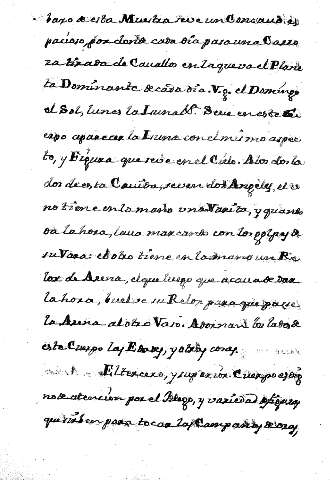 baxo de esta Muestra se ve un Concauo es
pacioso, por donde cada dia pasa una Carro
za tirada de Cauallos en la que va el Plane
ta Dominante de cada dia. V.g. el Domingo
el Sol, lunes la Luna &c. Se ve en este Cu
erpo aparecer la Luna con el mismo aspec
to, y Figura que se ve en el Cielo. A los dos la
dos de esta Cauidad, se ven dos Angeles, el v
no tiene en la mano una Varita, y quando
da la hora, la va marcando con los golpes de
su Vara: el otro tiene en la mano un Re
lox de Arena, el que luego que acaua de dar
la hora, buelve su Relox para que pase
la Arena al otro Vaso. Adornan los lados de
este Cuerpo las Edades, y otras cosas.
El tercero, y superior Cuerpo es dig
no de atencion por el Juego, y variedad de figuras
que sirben para tocar las Campanas de oras,